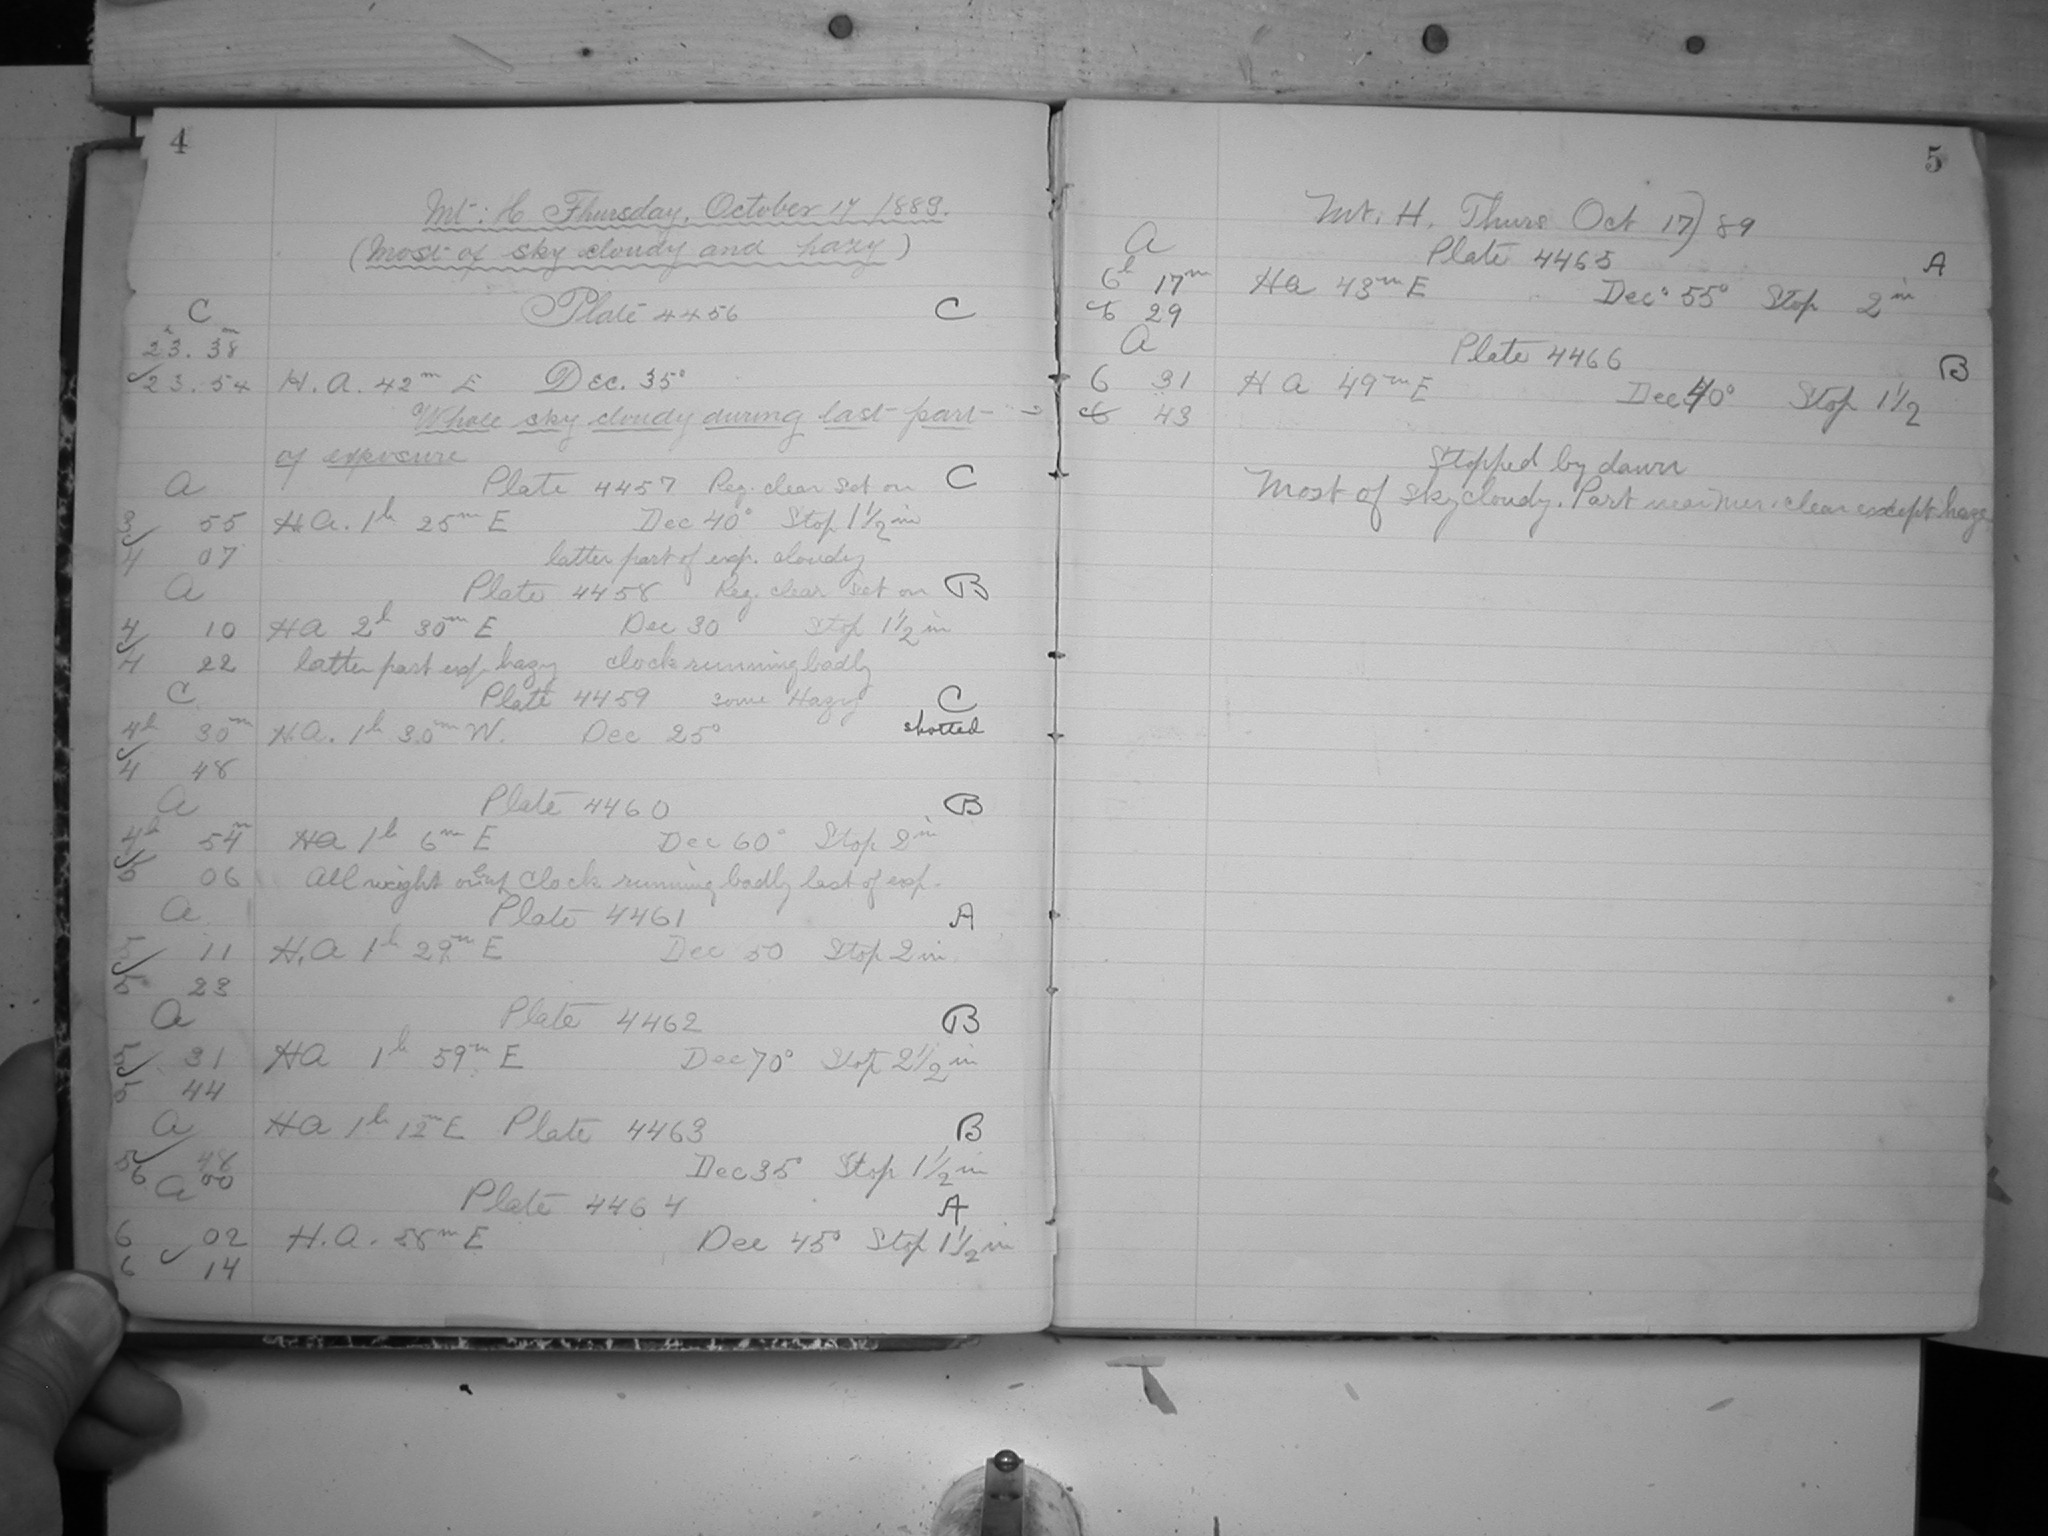 4
Mt: H Thursday, October 17 1889.
(Most of sky cloudy and hazy)
C Plate 4456 C
23h. 38m
23. 54 H. A. 42m E Dec. 35°
Whole sky cloudy during last part
of exposure
A Plate 4457 Reg. clear set on C
3 55 H A. 1h 25m E Dec 40° Stop 1 1/2 in
4 07 latter part of exp. cloudy
A Plate 4458 Reg. clear set on B
4 10 HA 2h 30m E Dec 30 Stop 1 1/2 in
4 22 latter part exp. hazy clock running badly
C Plate 4459 some Hazy C
4h 30m H.A. 1h 30m W. Dec 25° shotted
4 48
A Plate 4460 B
4h 54m HA 1h 6m E Dec 60° Stop 2 in
5 06 All weight on but Clock running badly last of exp.
A Plate 4461 A
5 11 H.A 1h 29m E Dec 50 Stop 2 in.
5 23
A Plate 4462 B
5 31 HA 1h 59m E Dec 70° Stop 2 1/2 in
5 44
A HA 1h 12m E Plate 4463 B
5 48 Dec 35° Stop 1 1/2 in
6 00
A Plate 4464 A
6 02 H.A. 58m E Dec 45° Stop 1 1/2 in
6 14
5
Mt. H. Thurs Oct 17) 89
A Plate 4465 A
6h 17m HA 43m E Dec. 55° Stop 2 in
6 29
A Plate 4466 B
6 31 H A 49m E Dec 40° Stop 1 1/2
6 43
Stopped by dawn
Most of sky cloudy. Part near mer. clear except haze